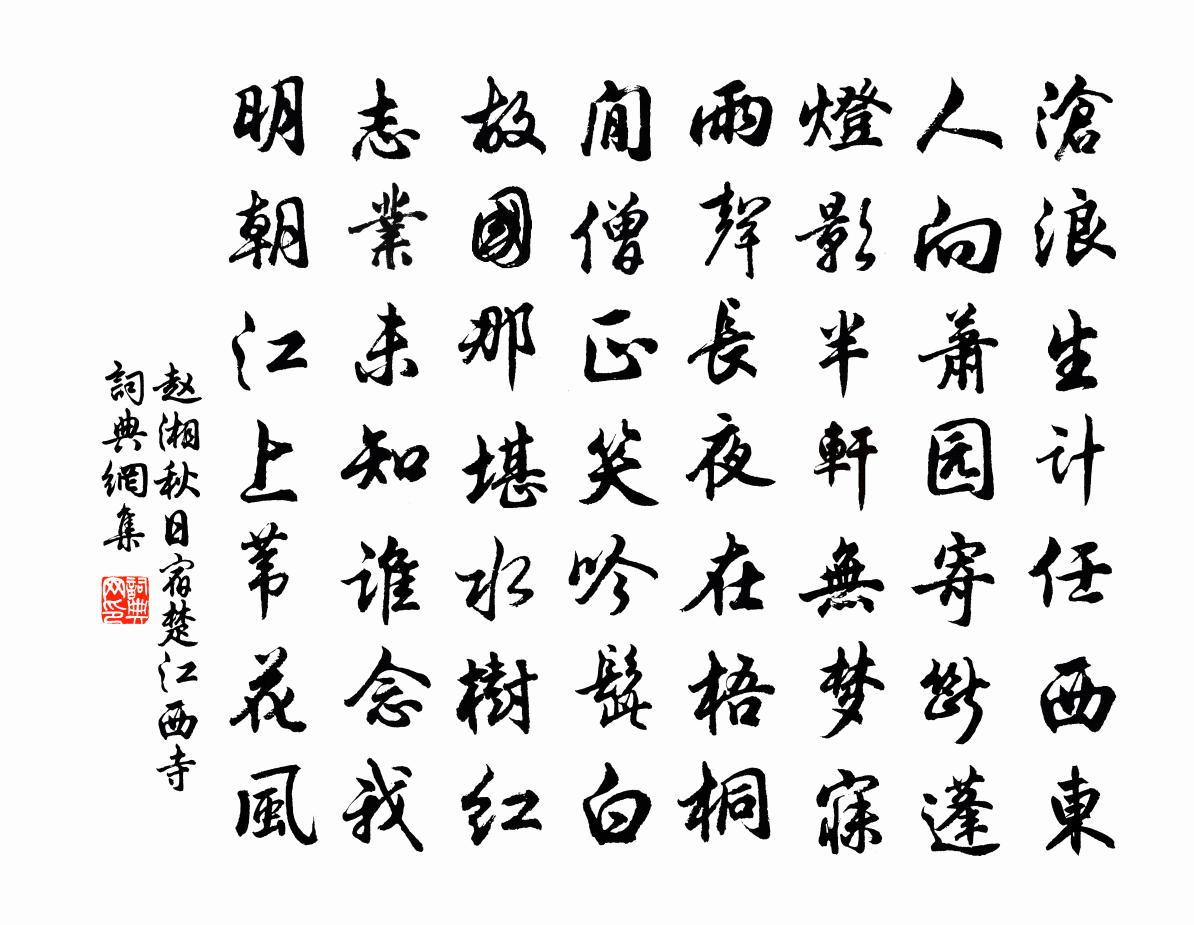 滄浪生计任西東
人向萧园寄斷蓬
燈影半軒無梦寐
雨聲長夜在梧桐
閒僧正笑吟髭白
故國那堪水樹红
志業未知谁念我
明朝江上苇花風
赵湘秋日宿楚江西寺
詞典網集
詞典
网印